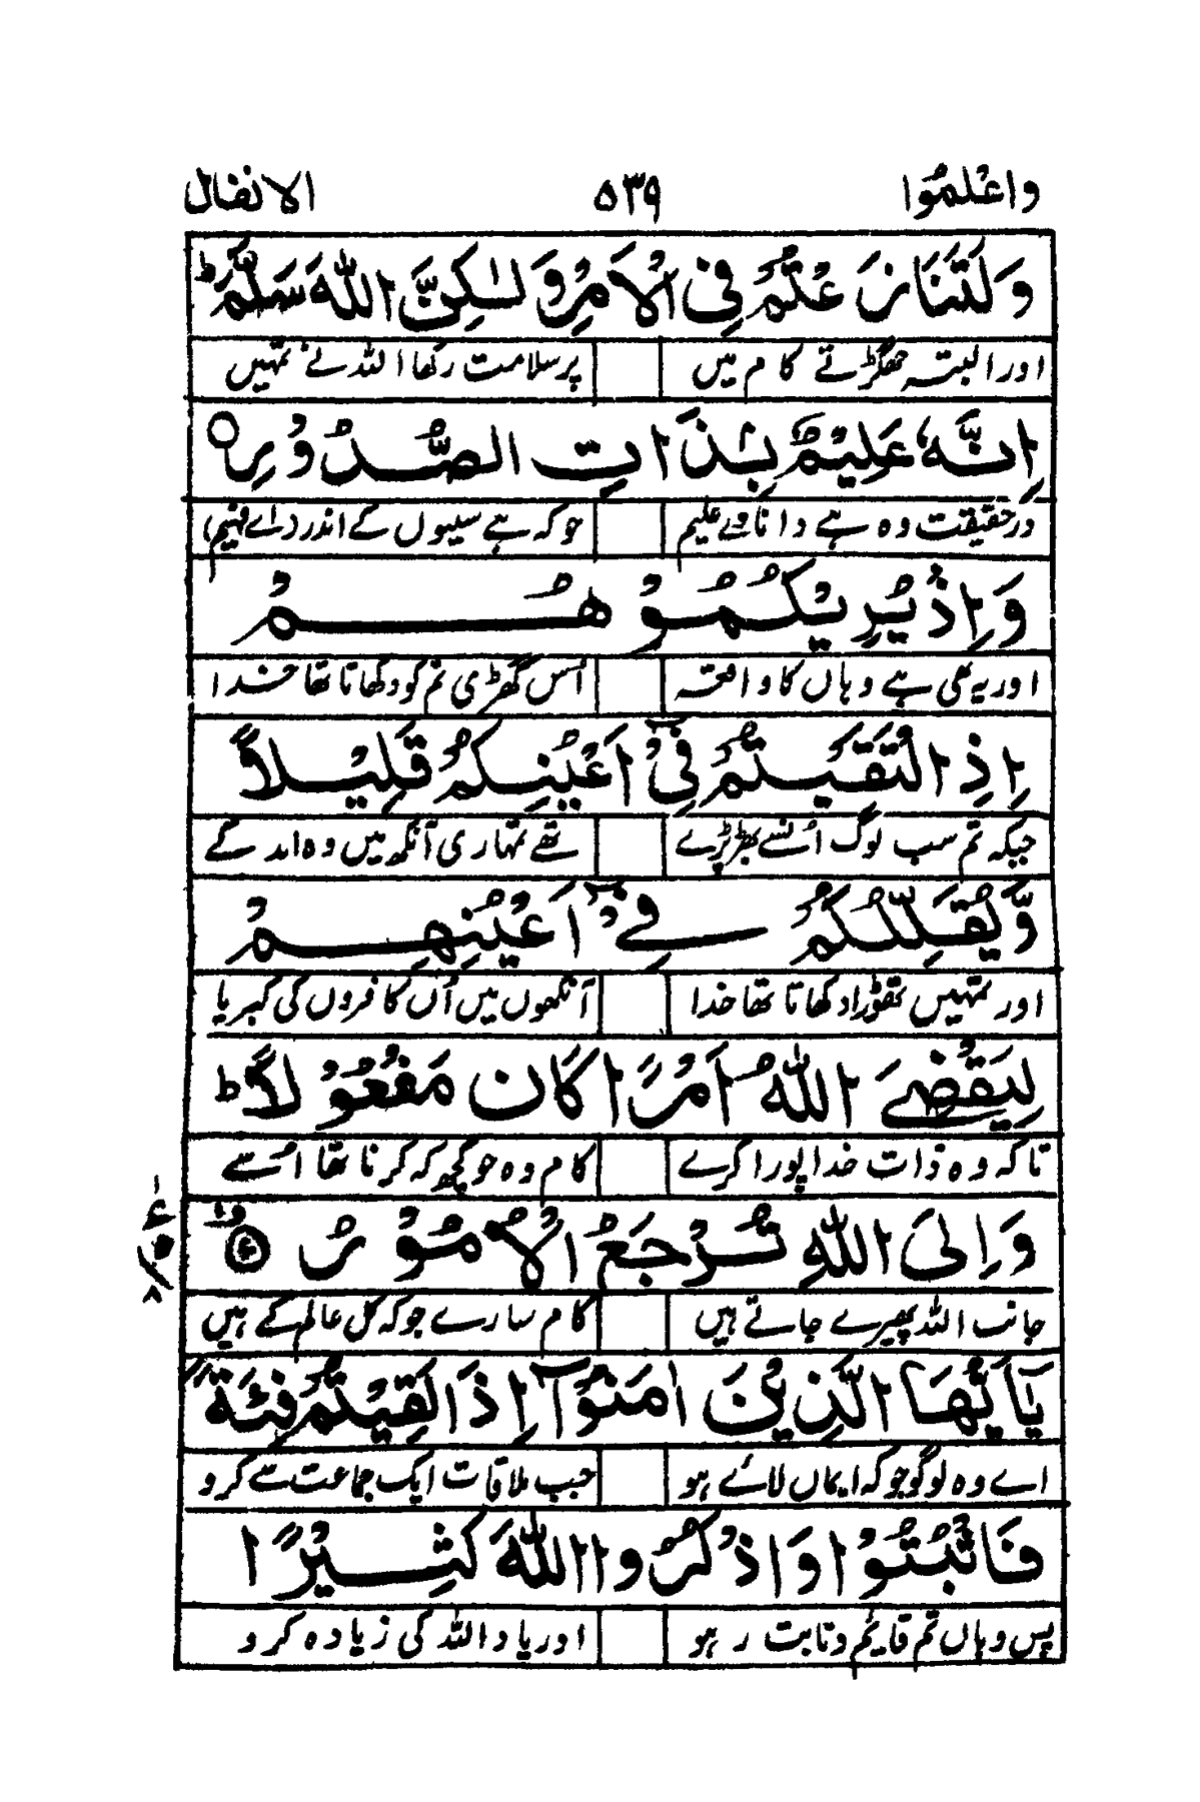 واعلموا ۵۳۹ الانفال
وَلَتَنَازَعْتُمْ فِی الْاَمْرِ وَلٰكِنَّ اللّٰهَ سَلَّمَ ؕ
اور البتہ جھگڑتے کام میں پر سلامت رکھا اللہ نے تمہیں
اِنَّهٗ عَلِیْمٌۢ بِذَاتِ الصُّدُوْرِ ○
در حقیقت وہ ہے دانا وے علیم جو کہ ہے سینوں کے اندر (اے فہیم)
وَاِذْ یُرِیْكُمُوْهُمْ
اور یہ بھی ہے وہاں کا واقعہ اُس گھڑی تم کو دکھاتا تھا خدا
اِذِ الْتَقَیْتُمْ فِیْۤ اَعْیُنِكُمْ قَلِیْلًا
جبکہ تم سب لوگ اُنسے بھڑ پڑے تھے تمہاری آنکھ میں وہ اند کے
وَّیُقَلِّلُكُمْ فِیْۤ اَعْیُنِهِمْ
اور تمہیں تھوڑا دکھاتا تھا خدا آنکھوں میں اُن کافروں کی کبریا
لِیَقْضِیَ اللّٰهُ اَمْرًا كَانَ مَفْعُوْلًا ؕ
تاکہ وہ ذات خدا پورا کرے کام وہ جو کچھ کہ کرنا تھا اُسے
وَاِلَی اللّٰهِ تُرْجَعُ الْاُمُوْرُ
جانب اللہ پھیرے جاتے ہیں کام سارے جو کہ کل عالم کے ہیں
یٰۤاَیُّهَا الَّذِیْنَ اٰمَنُوْۤا اِذَا لَقِیْتُمْ فِئَةً
اے وہ لوگو جو کہ ایماں لائے ہو جب ملاقات ایک جماعت سے کرو
فَاثْبُتُوْا وَاذْكُرُوا اللّٰهَ كَثِیْرًا
پس وہاں تم قایم و ثابت رہو اور یاد اللہ کی زیادہ کرو